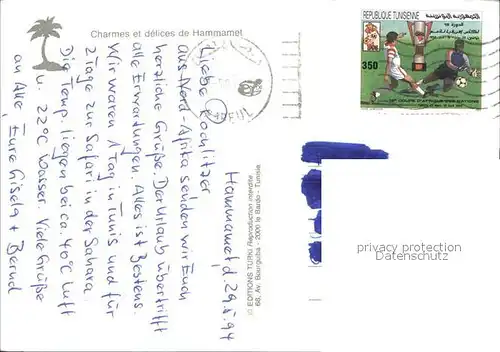 Charmes et délices de Hammamet
Hammamet, d. 29.5.94
Liebe Rochlitzer
aus Nord-Afrika senden wir Euch
herzliche Grüße. Der Urlaub übertrifft
alle Erwartungen. Alles ist Bestens.
Wir waren 1 Tag in Tunis und für
2 Tage zur Safari in der Sahara.
Die Temp. liegen bei ca. 40°C Luft
u. 22°C Wasser. Viele Grüße
an Alle, Eure Gisela + Bernd
© EDITIONS TURKI Reproduction interdite
68, Av. Bourguiba - 2000 le Bardo - Tunisie
REPUBLIQUE TUNISIENNE
الجمهورية التونسية
350
privacy protection
Datenschutz